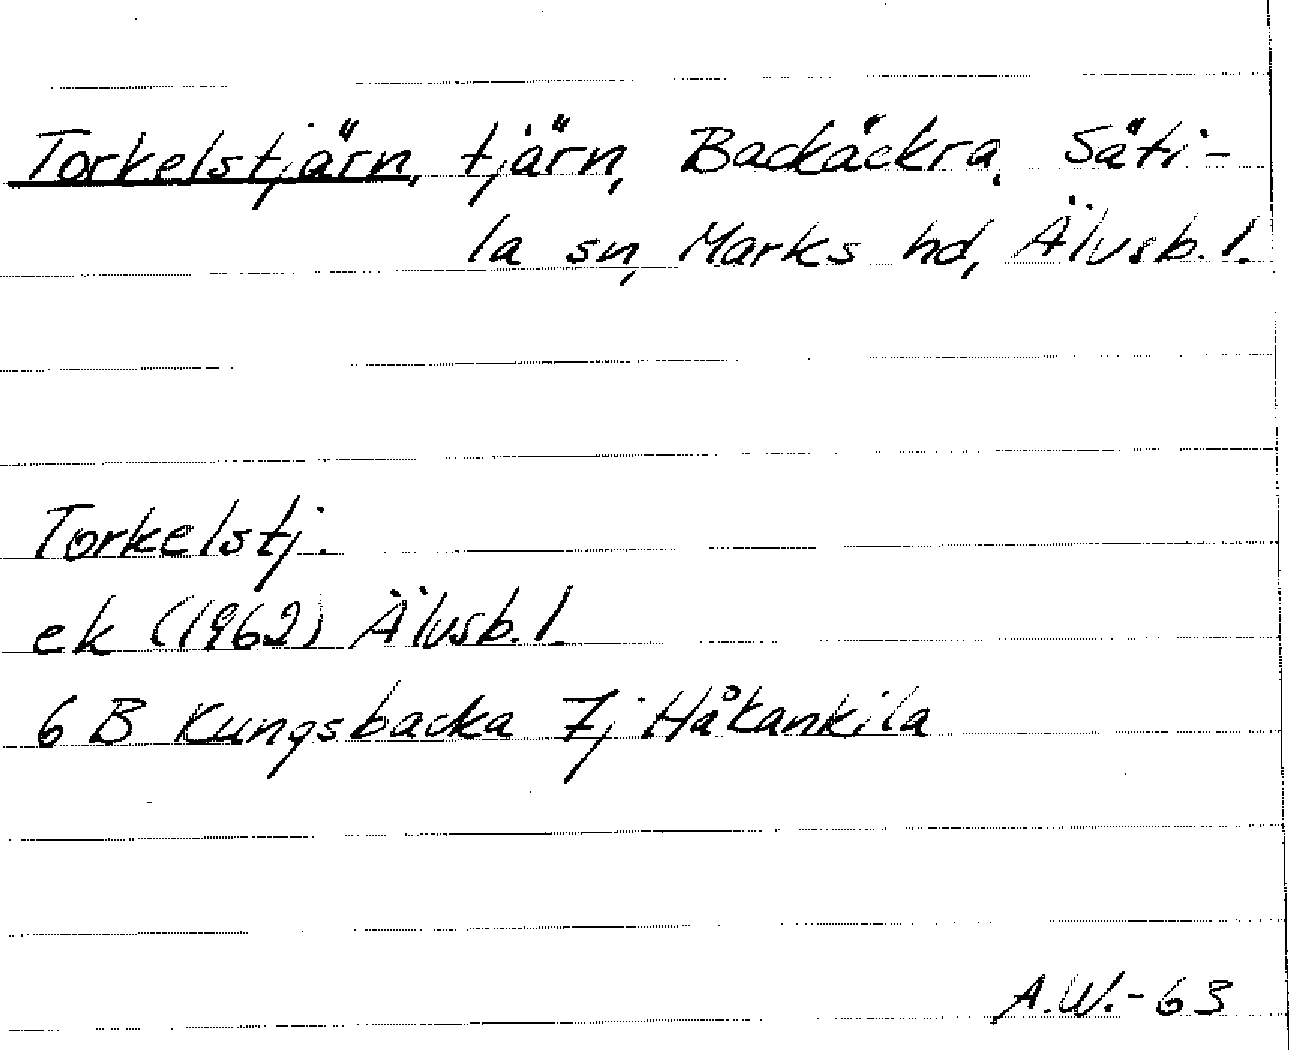 Torkelstjärn, tjärn, Backäckra, Säti-
la sn, Marks hd, Älvsb. l.
Torkelstj.
ek (1962) Älvsb. l.
6 B Kungsbacka 7j Håkankila
A.W.-63